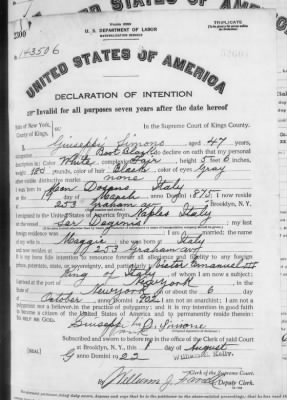 TRIPLICATE
U. S. DEPARTMENT OF LABOR
NATURALIZATION SERVICE
2300
143506
UNITED STATES OF AMERICA
DECLARATION OF INTENTION
Invalid for all purposes seven years after the date hereof
State of New York,
County of Kings,
ss:
In the Supreme Court of Kings County.
I, Giuseppe Simone, aged 47 years,
occupation Boot Black, do declare on oath that my personal
description is: Color White, complexion Fair, height 5 feet 6 inches,
weight 180 pounds, color of hair Black, color of eyes Gray
other visible distinctive marks none
I was born in Italy
on the 19 day of March, anno Domini 1875; I now reside
at 253 Graham ave, Brooklyn, N. Y.
I emigrated to the United States of America from Naples Italy
on the vessel; my last
foreign residence was; I am married; the name
of my wife is Maggie; she was born in Italy
and now resides at 253 Graham ave
It is my bona fide intention to renounce forever all allegiance and fidelity to any foreign
prince, potentate, state, or sovereignty, and particularly to Victor Emanuel III
King of Italy, of whom I am now a subject;
I arrived at the port of New York, in the
State of New York, on or about the 6 day
of October, anno Domini 1902; I am not an anarchist; I am not a
polygamist nor a believer in the practice of polygamy; and it is my intention in good faith
to become a citizen of the United States of America and to permanently reside therein:
SO HELP ME GOD.
Giuseppe Simone
Subscribed and sworn to before me in the office of the Clerk of said Court
at Brooklyn, N. Y., this 8 day of August
anno Domini 1922
[SEAL]
William E. Kelly,
Clerk of the Supreme Court.
By William J.
Deputy Clerk.